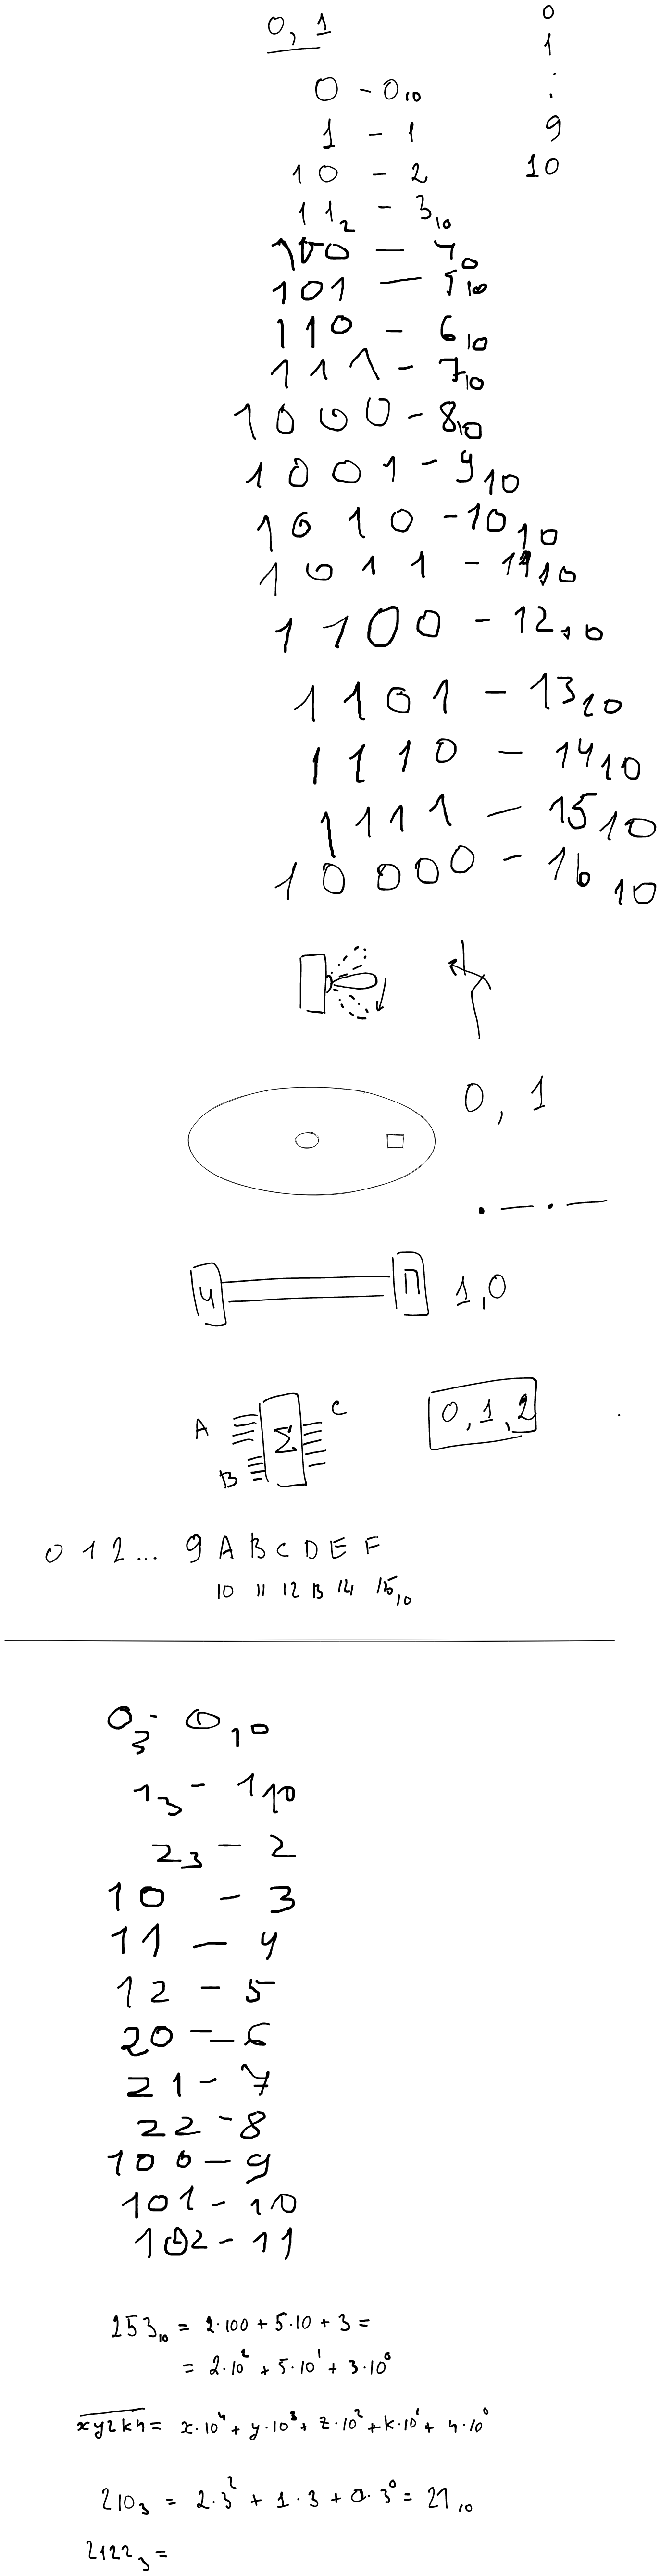 0, 1
0
1
:
9
10
0 - 0₁₀
1 - 1
10 - 2
11₂ - 3₁₀
100 - 4₁₀
101 - 5₁₀
110 - 6₁₀
111 - 7₁₀
1000 - 8₁₀
1001 - 9₁₀
1010 - 10₁₀
1011 - 11₁₀
1100 - 12₁₀
1101 - 13₁₀
1110 - 14₁₀
1111 - 15₁₀
10000 - 16₁₀
0, 1
. — . —
И П 1,0
A Σ C
B
0, 1, 2
0 1 2 ... 9 A B C D E F
10 11 12 13 14 15₁₀
0₃ - 0₁₀
1₃ - 1₁₀
2₃ - 2
10 - 3
11 - 4
12 - 5
20 - 6
21 - 7
22 - 8
100 - 9
101 - 10
102 - 11
253₁₀ = 2·100 + 5·10 + 3 =
= 2·10² + 5·10¹ + 3·10⁰
xyzkn = x·10⁴ + y·10³ + z·10² + k·10¹ + n·10⁰
210₃ = 2·3² + 1·3 + 0·3⁰ = 21₁₀
2122₃ =